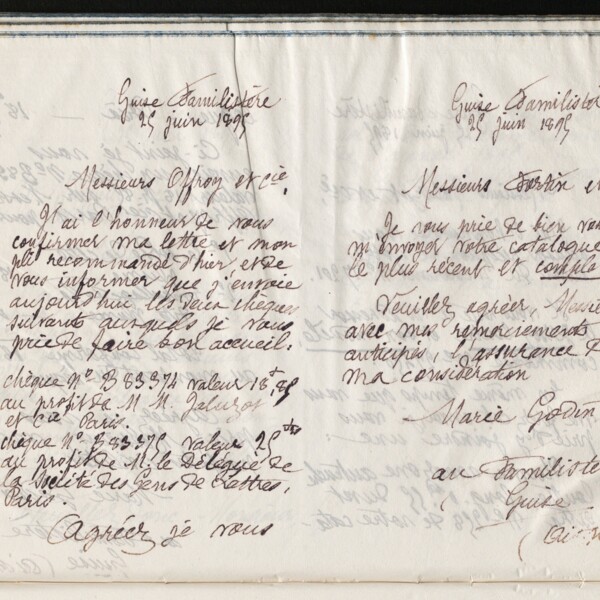 Guise Familistère
25 juin 1895
Messieurs Offroy et Cie,
J'ai l'honneur de vous
confirmer ma lettre et mon
pli recommandé d'hier et de
vous informer que j'envoie
aujourd'hui les deux chèques
suivants auxquels je vous
prie de faire bon accueil:
chèque No B 83374 valeur 18f,85
au profit de M M. Jaluzot
et Cie Paris.
chèque No B 83375 valeur 25f
au profit de M. le Délégué de
la Société des Gens de Lettres,
Paris.
Agréez je vous
Guise Familistè
25 juin 1895
Messieurs Fortin e
Je vous prie de bien vou
m'envoyer votre catalogue
le plus récent et comple
Veuillez agréer, Messie
avec mes remerciements
anticipés, l'assurance d
ma considération
Marie Godin
au Familistè
Guise
(Aisn